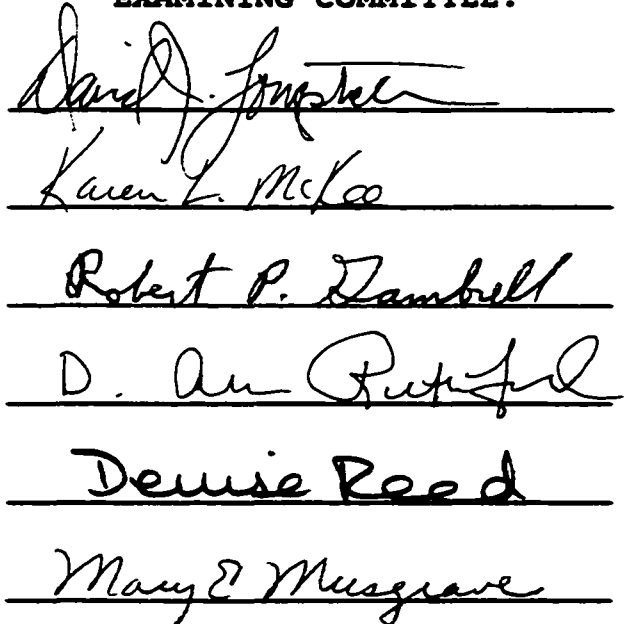 EXAMINING COMMITTEE:
David J. Longstreth
Karen L. McKee
Robert P. Gambrell
D. Ann Rutherford
Denise Reed
Mary E Musgrave